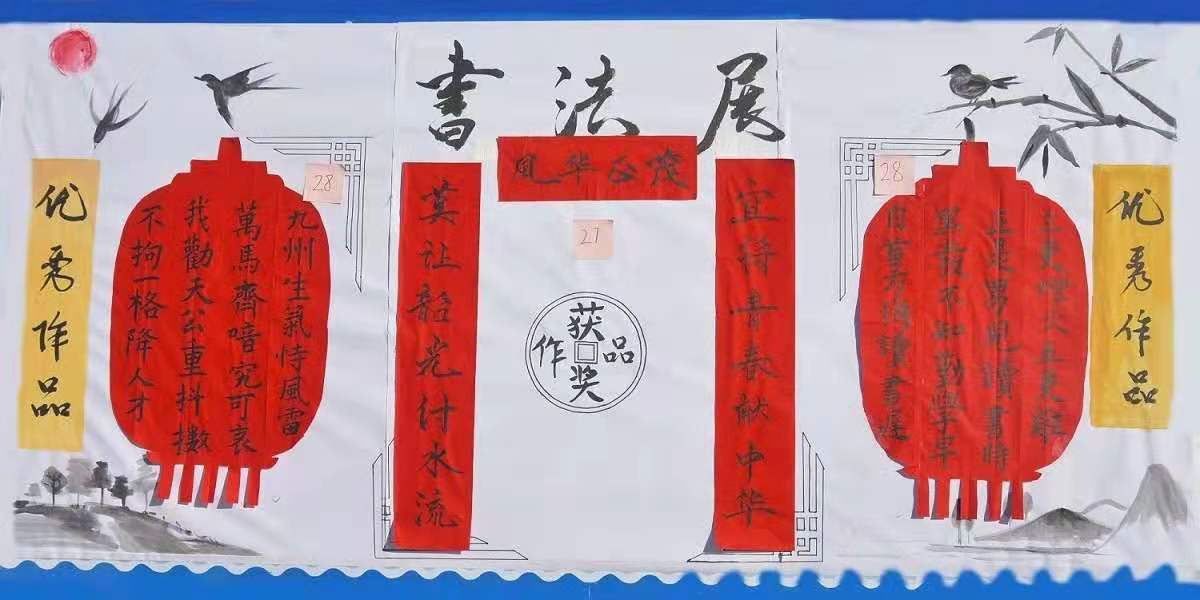 書法展
风华正茂
优秀作品
28
九州生氣恃風雷
萬馬齊喑究可哀
我勸天公重抖擻
不拘一格降人才
莫让韶光付水流
27
获奖作品
宜将青春献中华
28
三更燈火五更雞
正是男兒讀書時
黑髮不知勤學早
白首方悔讀書遲
优秀作品